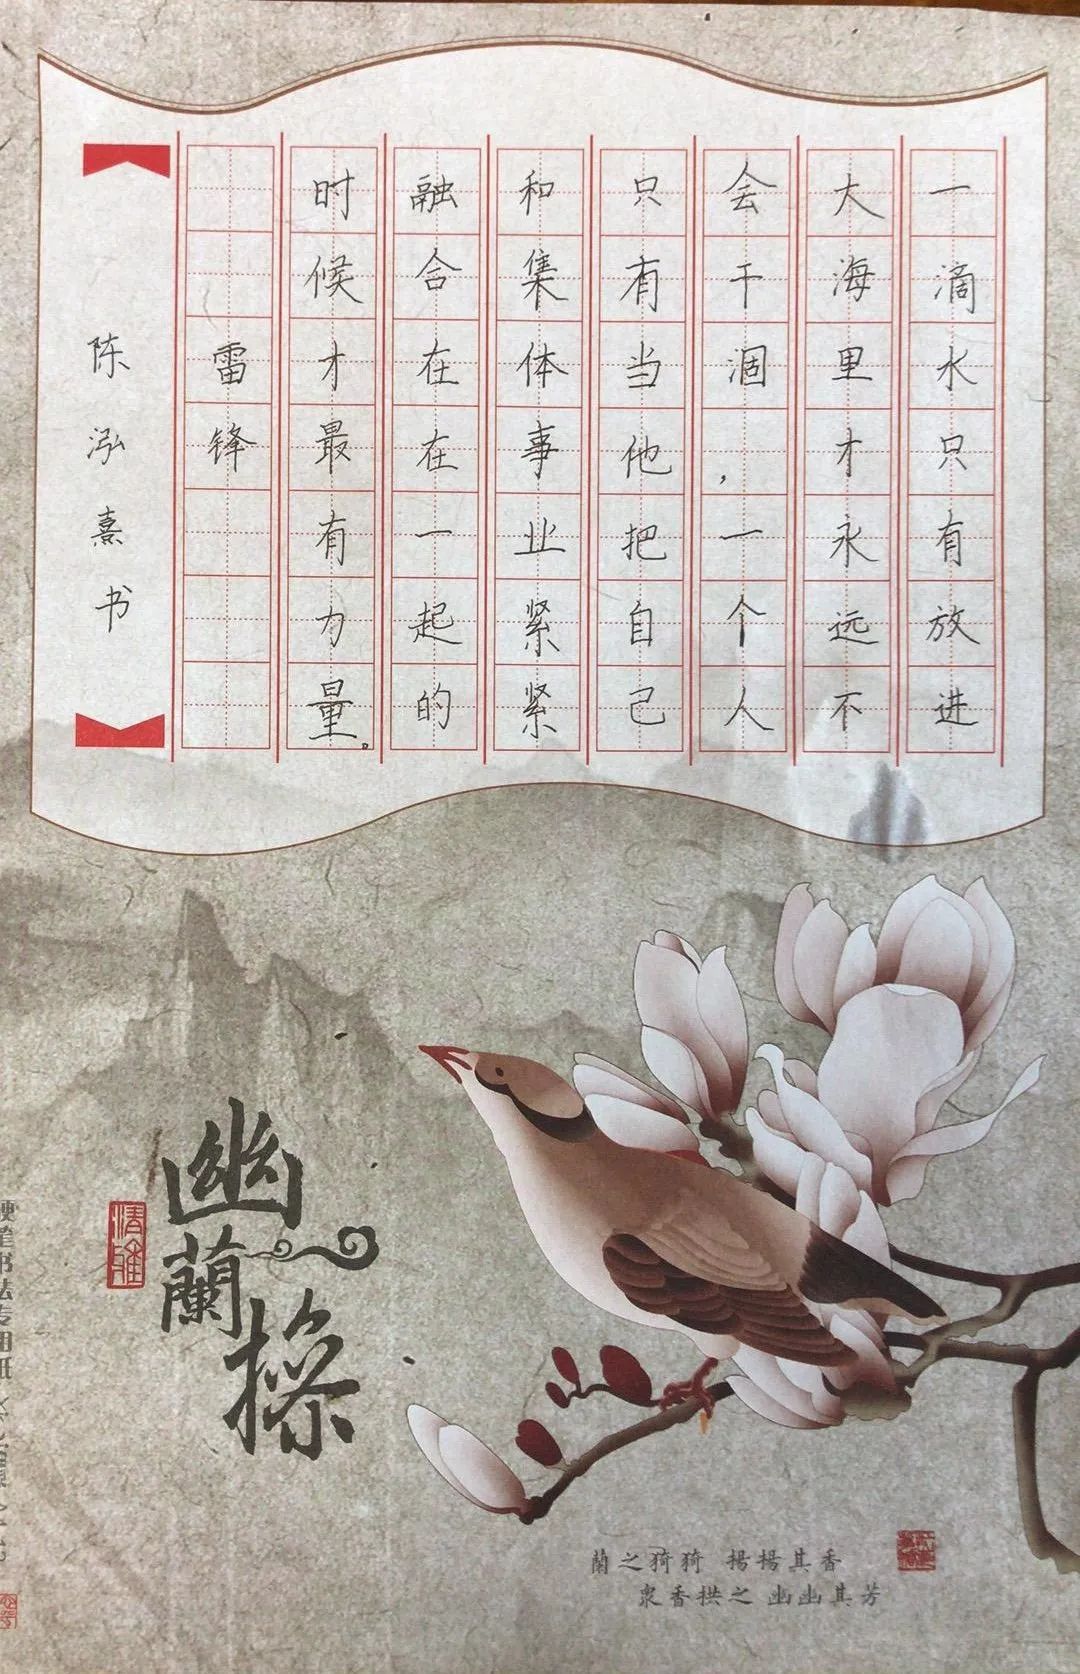 一滴水只有放进
大海里才永远不
会干涸，一个人
只有当他把自己
和集体事业紧紧
融合在在一起的
时候才最有力量。
雷锋
陈泓熹书
幽蘭操
清雅
蘭之猗猗 揚揚其香
衆香拱之 幽幽其芳
硬笔书法专用纸